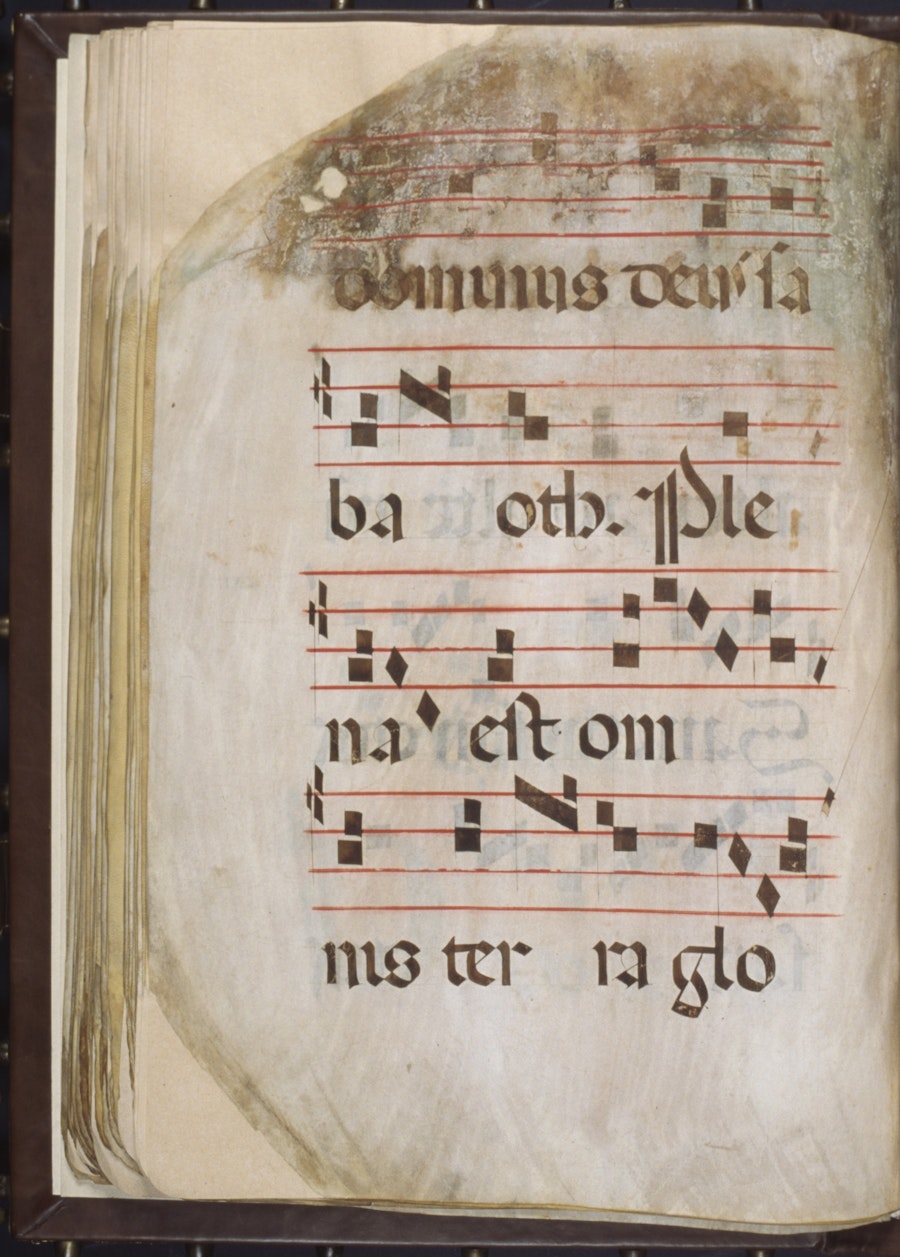 dominus deus sa
ba oth. Ple
na est om
nis ter ra glo